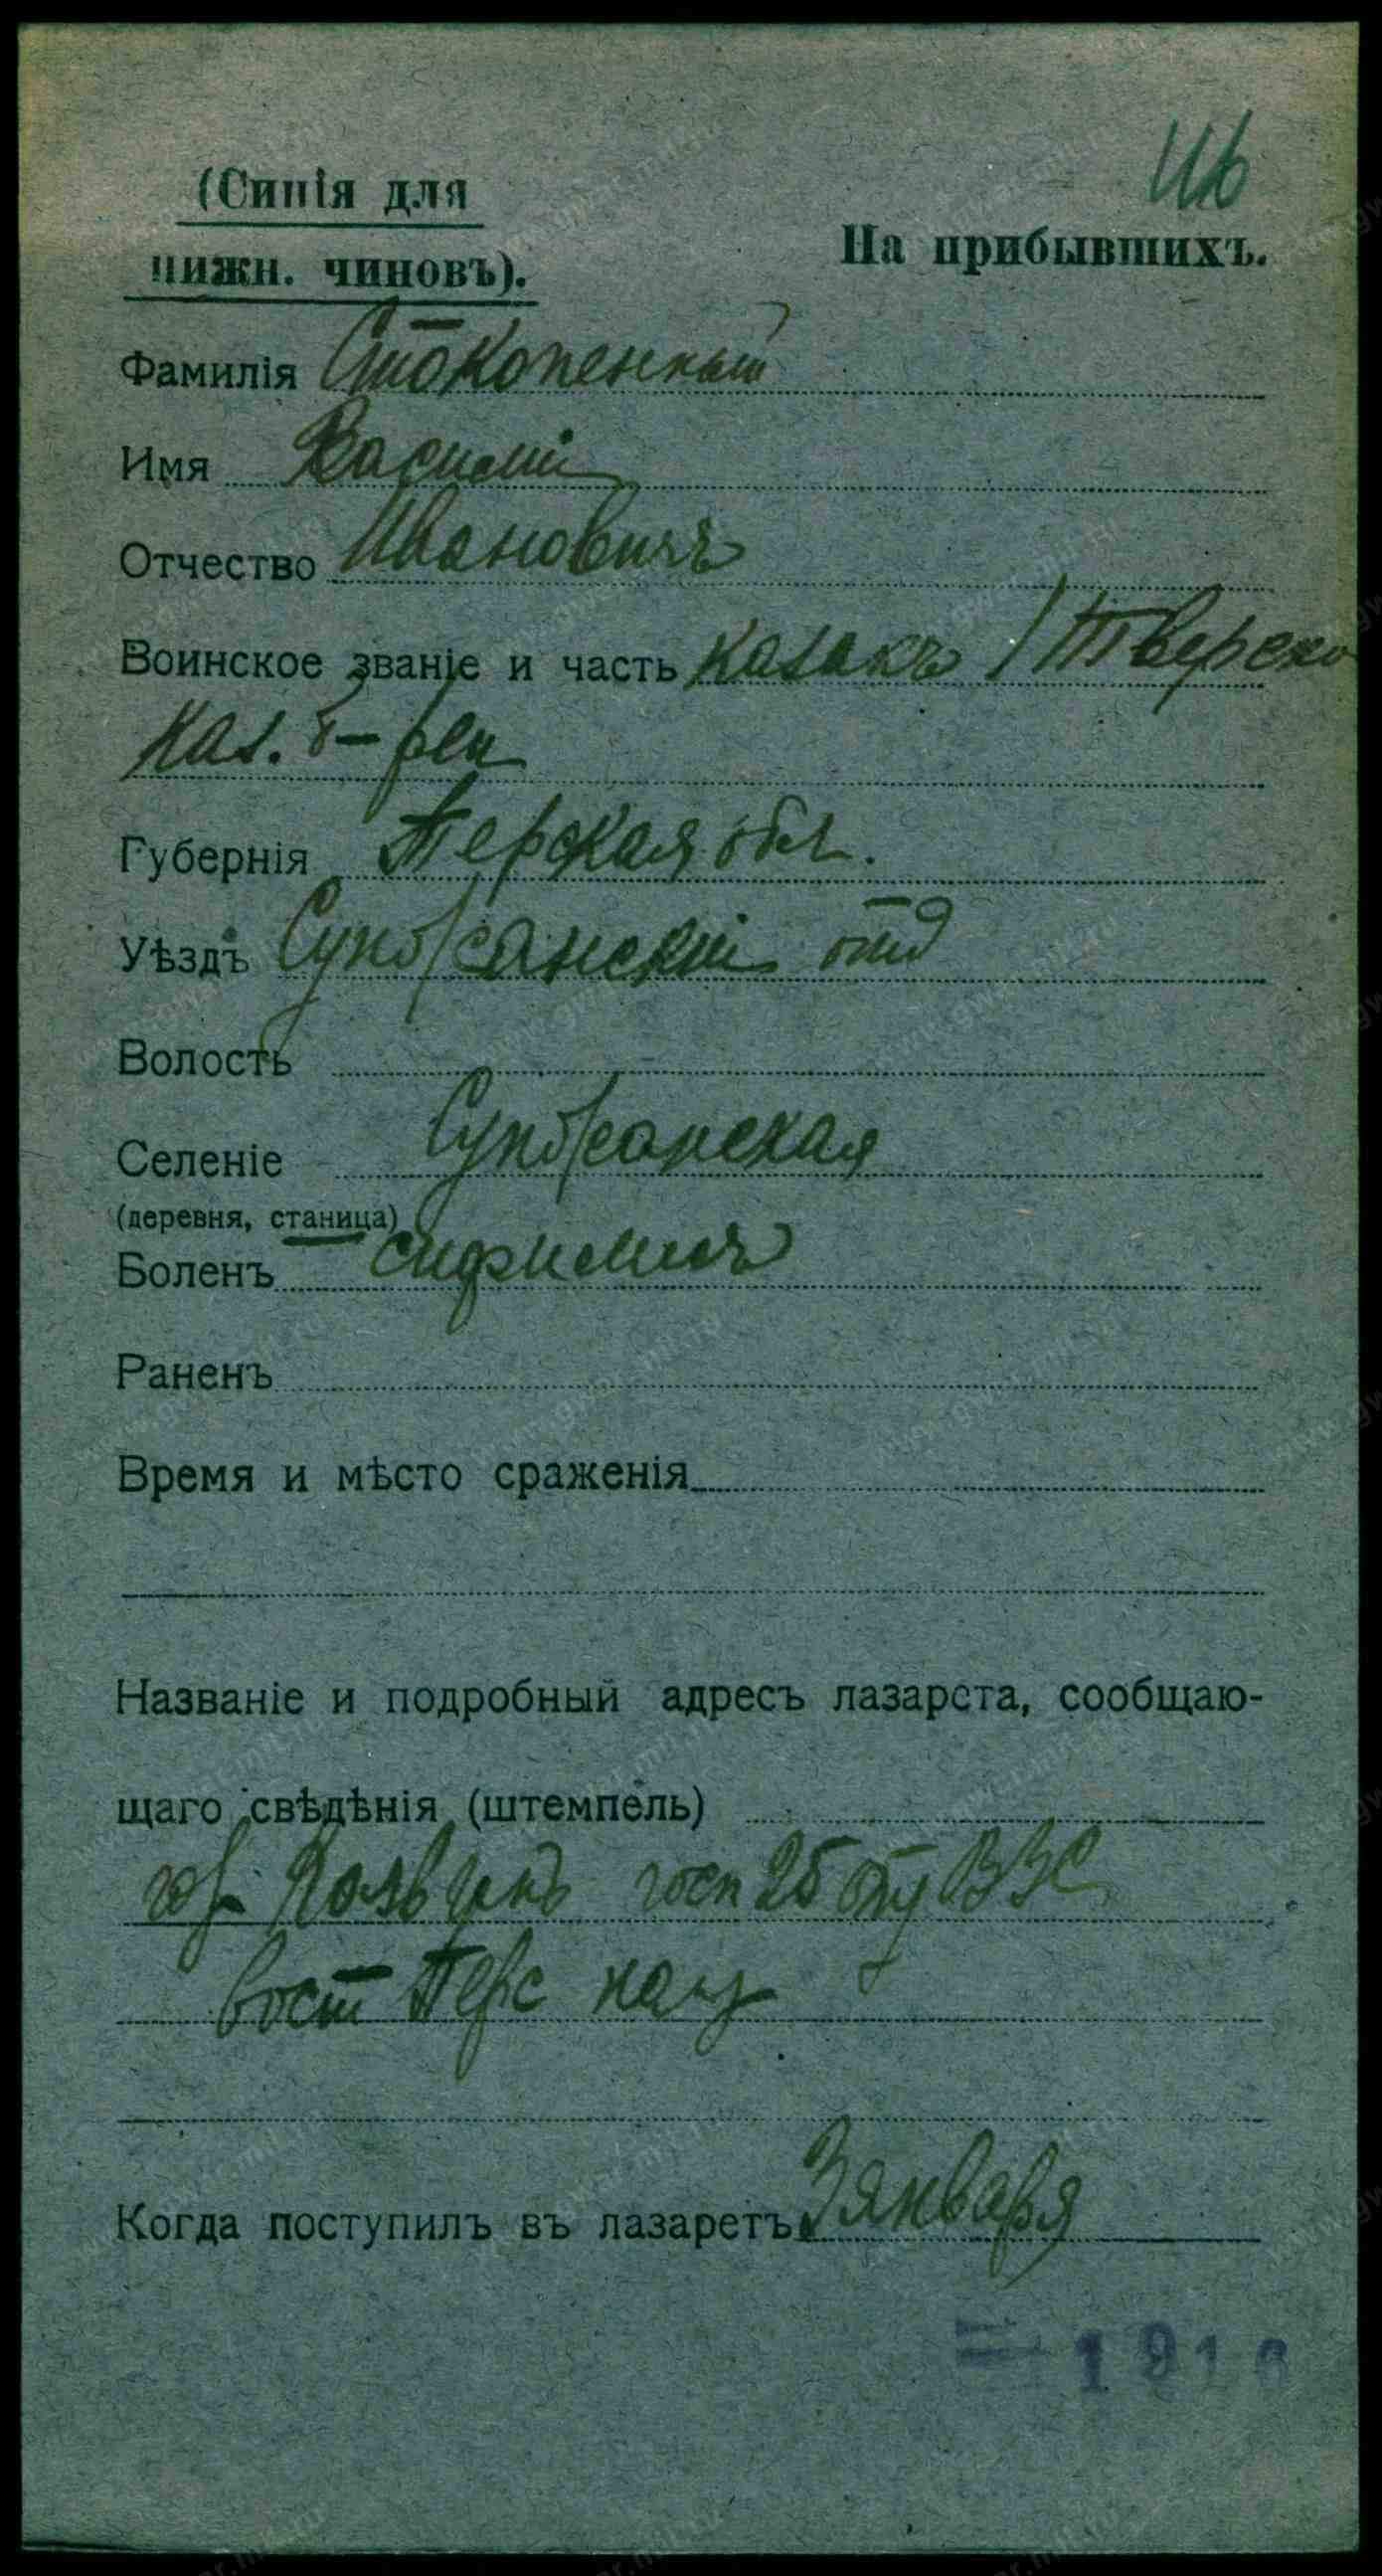 (Синія для
нижн. чиновъ).
На прибывшихъ.
Фамилія Стокопенный
Имя Василій
Отчество Ивановичъ
Воинское званіе и часть казакъ 1
каз.
Губернія Терская обл.
Уѣздъ отд
Волость
Селеніе
(деревня, станица)
Боленъ сифилисъ
Раненъ
Время и мѣсто сраженія
Названіе и подробный адресъ лазарета, сообщаю-
щаго свѣдѣнія (штемпель)
гор. Казвинъ госп 25 отр ВЗС
вост Перс
Когда поступилъ въ лазаретъ 3 января
1916